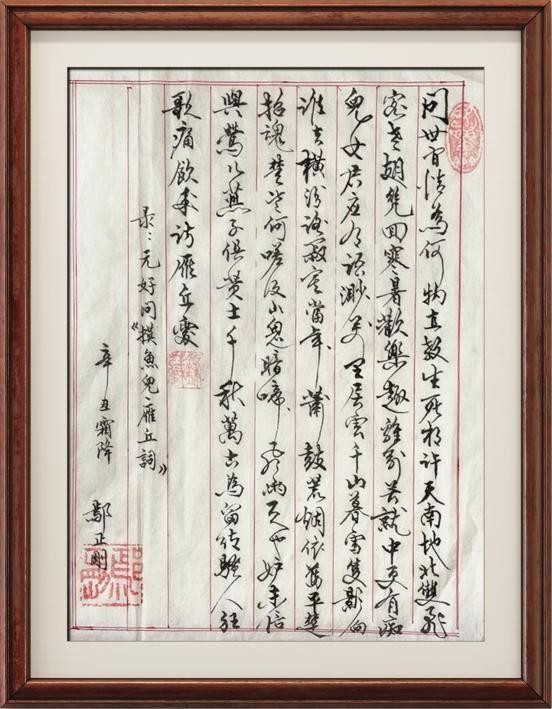 问世间情為何物直教生死相許天南地北雙飛
客老翅幾回寒暑歡樂趣離别苦就中更有痴
兒女君应有語渺万里层雲千山暮雪隻影向
谁去横汾路寂寞當年萧鼓荒烟依舊平楚
招魂楚些何嗟及山鬼暗啼風雨天也妒未信
與鶯儿燕子俱黄土千秋萬古為留待騷人狂
歌痛飲来訪雁丘處
录：元好问《摸魚兒雁丘詞》
辛丑霜降 鄢正剛